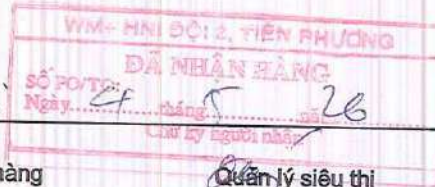 WM+ HNI ĐỘI 2, TIÊN PHƯƠNG
ĐÃ NHẬN HÀNG
SỐ PO/TO:
Ngày 4 tháng 5 nă 26
Chữ ký người nhận
hàng Quản lý siêu thị